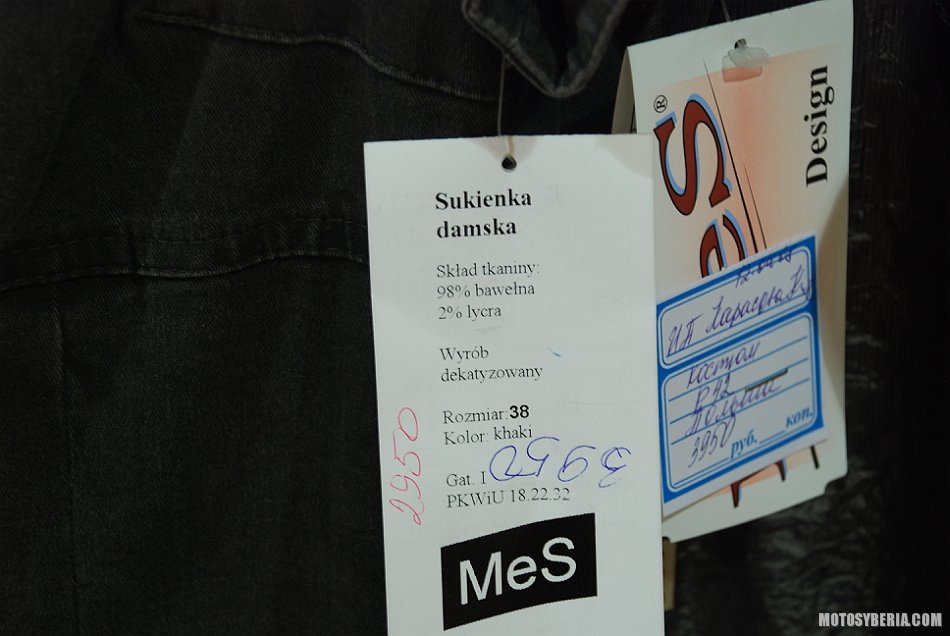 Sukienka
damska
Skład tkaniny:
98% bawełna
2% lycra
Wyrób
dekatyzowany
Rozmiar:38
Kolor: khaki
Gat. I
PKWiU 18.22.32
3950
2950
MeS
eS®
Design
ИП
костюм
р 42
Польша
3950 руб. коп.
MOTOSYBERIA.COM